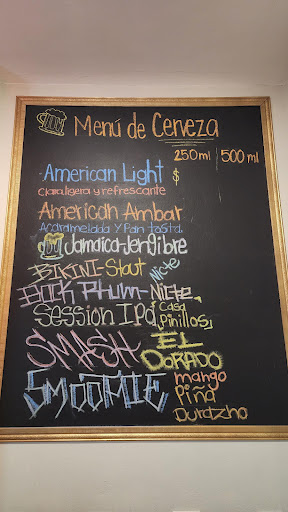 Menú de Cerveza
250 ml / 500 ml
American Light $
Clara,ligera y refrescante
American Ambar
Acaramelada Y Pan tostita
Jamaica-Jengibre
BIKINI-Stout Nicte
Nicte
Session IPA "Casa Pinillos"
SMASH EL DORADO
SMOOMIE mango
Piña
Durazno